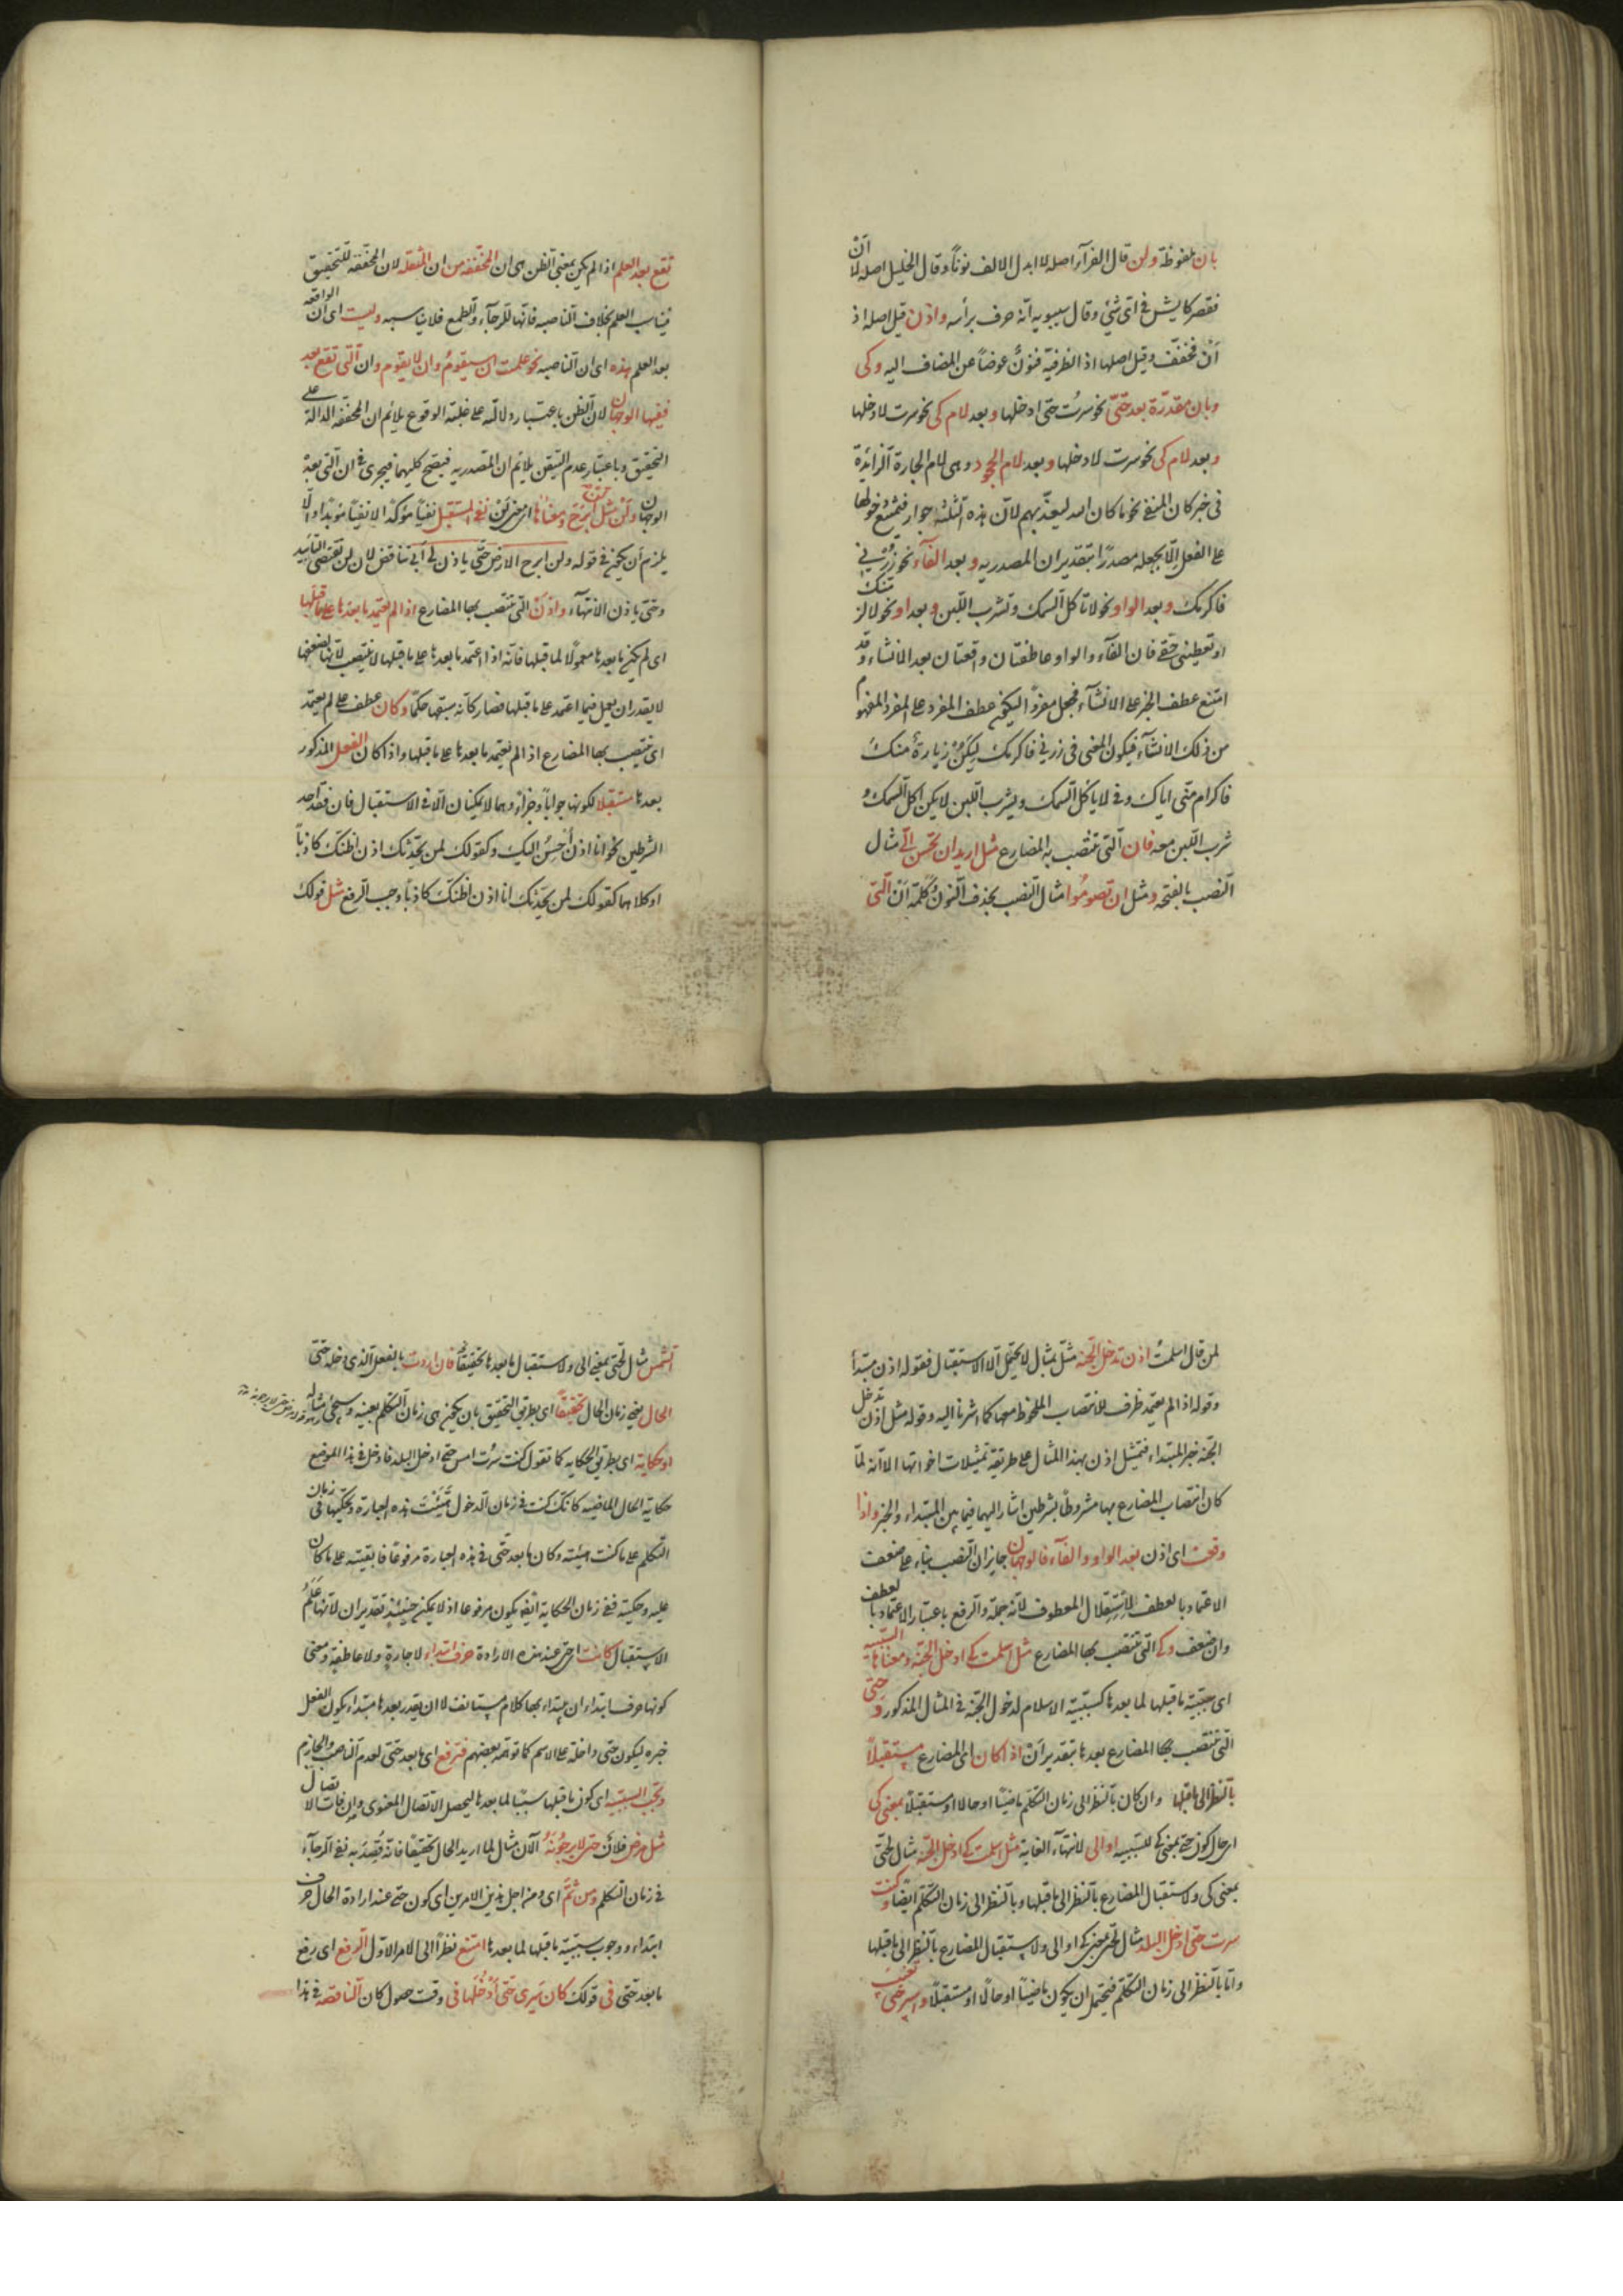 بان ملفوظة ولن قال الفرآء اصله لا ابدل الالف نونًا وقال الخليل اصله لا ان
فقصر كايش في اى شئ وقال سيبويه انه حرف برأسه واذن قيل اصله اذ
أن فخفف وقيل اصلها اذ الظرفية فنوّن عوضًا عن المضاف اليه وكى
وبان مقدرة بعد حتى نحو سرت حتى ادخلها وبعد لام كى نحو سرت لادخلها
وبعد لام كى نحو سرت لادخلها وبعد لام الجحود وهى لام الجارة الزائدة
فى خبر كان المنفى نحو ما كان الله ليعذبهم لان هذه الثلثة جوار فتمتنع دخولها
على الفعل الا بجعله مصدرًا بتقدير ان المصدريه وبعد الفآء نحو زرنى
فاكرمك وبعد الواو نحو لا تأكل السمك وتشرب اللبن وبعد او نحو لالزمنك
او تعطينى حقى فان الفآء والواو عاطفتان واقعتان بعد الانشاء وقد
امتنع عطف الخبر على الانشآء فجعل مفردًا ليكون عطف المفرد على المفرد المفهوم
من ذلك الانشآء فيكون المعنى فى زرنى فاكرمك ليكن زيارة منك
فاكرام منى اياك وفى لا تأكل السمك وتشرب اللبن لا يكن اكل السمك و
شرب اللبن معه فان التى تنتصب به المضارع مثل اريد ان تحسن الىّ مثال
النصب بالفتحه ومثل ان تصوموا مثال النصب بحذف النون وكلمة ان التى
تقع بعد العلم اذا لم يكن بمعنى الظن هى ان المخففة من ان المثقله لان المخففه للتحقيق
فيناسب العلم بخلاف الناصبه فانها للرجآء والطمع فلا يناسبه وليست اى ان الواقعه
بعد العلم هذه اى ان الناصبه نحو علمت ان سيقوم وان لا يقوم وان التى تقع بعد
ففيها الوجهان لان الظن باعتبار دلالته على غلبة الوقوع يلائم ان المخففة الدالة على
التحقيق وباعتبار عدم التيقن يلائم ان المصدريه فيصح كليهما فيجرى فى ان التى بعده
الوجهان ولن مثل لن ابرح ومعناها اى معنى لن نفى المستقبل نفيًا مؤكدًا لا نفيًا مؤبدًا والا
يلزم أن يكون فى قوله ولن ابرح الارض حتى ياذن لى ابى تناقض لان لن تقتضى التأبيد
وحتى ياذن الانتهآء واذن التى تنتصب بها المضارع اذا لم يعتمد ما بعدها على ما قبلها
اى لم يكن ما بعدها معمولًا لما قبلها فانه اذا اعتمد ما بعدها على ما قبلها لا ينتصب لانها لضعفها
لا يقدر ان يعمل فيما اعتمد على ما قبلها فصار كانه سبقها حكمًا وكان عطف على لم يعتمد
اى ينتصب بها المضارع اذا لم يعتمد ما بعدها على ما قبلها واذا كان الفعل المذكور
بعدها مستقبلا لكونها جوابًا وجزاءً وهما لا يمكنان الا فى الاستقبال فان فقد احد
الشرطين نحو انا اذن أحسن اليك وكقولك لمن يحدثك اذن اظنك كاذبًا
او كلاهما كقولك لمن يحدثك انا اذن اظنك كاذبًا وجب الرفع مثل قولك
لمن قال اسلمت اذن تدخل الجنة مثل بمثال لا يحتمل الا الاستقبال فقوله اذن مبتدأ
وقوله اذا لم يعتمد ظرف للانتصاب الملحوظ معها كما اشرنا اليه وقوله مثل اذن تدخل
الجنة خبر المبتداء فتمثيل اذن بهذا المثال على طريقة تمثيلات اخواتها الا انه لما
كان انتصاب المضارع بها مشروطًا بشرطين اشار اليهما فيما بين المبتداء والخبر واذا
وقعت اى اذن بعد الواو والفآء فالوجهان جايزان النصب بناء على ضعف
الاعتماد بالعطف لاستقلال المعطوف لانه جملة والرفع باعتبار الاعتماد بالعطف
وان ضعف وكى التى تنتصب بها المضارع مثل اسلمت كى ادخل الجنة ومعناها السببيه
اى سببية ما قبلها لما بعدها كسببية الاسلام لدخول الجنة فى المثال المذكور وحتى
التى تنتصب بها المضارع بعدها بتقدير أن اذا كان اى المضارع مستقبلًا
بالنظر الى ما قبلها وان كان بالنظر الى زمان التكلم ماضيًا او حالا او مستقبلًا بمعنى كى
اى حال كون حتى بمعنى كى للسببيه او الى لانتهآء الغاية مثل اسلمت كى ادخل الجنة مثال لحتى
بمعنى كى ولاستقبال المضارع بالنظر الى ما قبلها وبالنظر الى زمان التكلم ايضًا وكنت
سرت حتى ادخل البلد مثال لحتى بمعنى كى او الى ولاستقبال المضارع بالنظر الى ما قبلها
واما بالنظر الى زمان التكلم فيحتمل ان يكون ماضيًا او حالًا او مستقبلًا واسير حتى تغيب
الشمس مثال لحتى بمعنى الى ولاستقبال ما بعدها تحقيقًا فان اردت بالفعل الذى دخله حتى
الحال يعنى زمان الحال تحقيقًا اى بطريق التحقيق بان يكون هى زمان التكلم بعينه وسيجئ مثاله
او حكاية اى بطريق الحكايه كما تقول كنت سرت امس حتى ادخل البلد فادخل فى هذا الموضع
حكاية الحال الماضيه كانك كنت فى زمان الدخول هيئت هذه العبارة وتحكيها فى زمان
التكلم على ما كنت هيئته وكان ما بعد حتى فى هذه العبارة مرفوعًا فابقيته على ما كان
عليه وحكيته ففى زمان الحكاية ايضًا يكون مرفوعا اذ لا يمكن حينئذ تقدير ان لانها علم
الاستقبال كانت اى حتى عند هذه الارادة حرف ابتداء لا جارة ولا عاطفة ومعنى
كونها حرف ابتداء ان يبتداء بها كلام مستانف لا ان يقدر بعدها مبتداء يكون الفعل
خبره ليكون حتى داخلة على الاسم كما توهمه بعضهم فترفع اى ما بعد حتى لعدم الناصب والجازم
وتجب السببيه اى كون ما قبلها سببًا لما بعدها ليحصل الاتصال المعنوى وان فات الاتصال
مثل مرض فلان حتى لا يرجونه الآن مثال لما اريد الحال تحقيقًا فانه قصد به نفى الرجآء
فى زمان التكلم ومن ثم اى ومن اجل هذين الامرين اى كون حتى عند ارادة الحال حرف
ابتداء ووجوب سببية ما قبلها لما بعدها امتنع نظرًا الى الامر الاول الرفع اى رفع
ما بعد حتى فى قولك كان سيرى حتى أدخلها فى وقت حصول كان الناقصه فى هذا